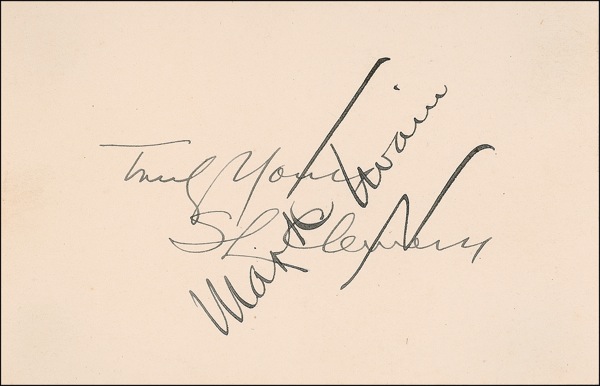 Truly Yours
S L. Clemens
Mark Twain